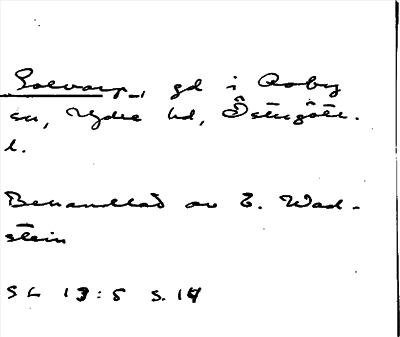 Solvarp, gd i Asby
sn, Ydre hd, Östergötl.
l.
Behandlad av E. Wad-
stein
SL 13:5 s. 14